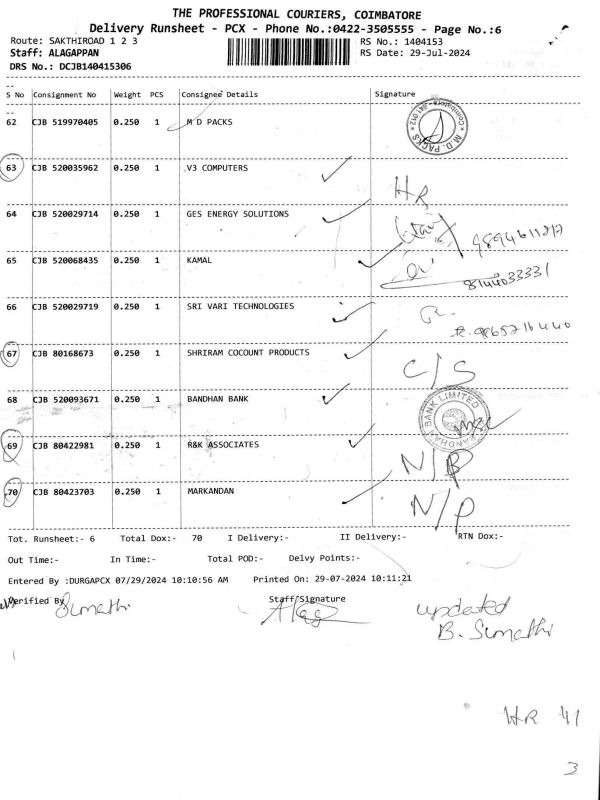 THE PROFESSIONAL COURIERS, COIMBATORE
Delivery Runsheet - PCX - Phone No.:0422-3505555 - Page No.:6
Route: SAKTHIROAD 1 2 3 RS No.: 1404153
Staff: ALAGAPPAN RS Date: 29-Jul-2024
DRS No.: DCJB140415306
S No Consignment No Weight PCS Consignee Details Signature
62 CJB 519970405 0.250 1 M D PACKS
* M.D. PACKS * Coimbatore - 641 012
63 CJB 520035962 0.250 1 V3 COMPUTERS HR
64 CJB 520029714 0.250 1 GES ENERGY SOLUTIONS
65 CJB 520068435 0.250 1 KAMAL 8144033331
66 CJB 520029719 0.250 1 SRI VARI TECHNOLOGIES
67 CJB 80168673 0.250 1 SHRIRAM COCOUNT PRODUCTS C/S
68 CJB 520093671 0.250 1 BANDHAN BANK BANDHAN BANK LIMITED
69 CJB 80422981 0.250 1 R&K ASSOCIATES N/P
70 CJB 80423703 0.250 1 MARKANDAN N/P
Tot. Runsheet:- 6 Total Dox:- 70 I Delivery:- II Delivery:- RTN Dox:-
Out Time:- In Time:- Total POD:- Delvy Points:-
Entered By :DURGAPCX 07/29/2024 10:10:56 AM Printed On: 29-07-2024 10:11:21
Verified By Sumathi Staff Signature Alag updated
B. Sumathi
HR 41
3